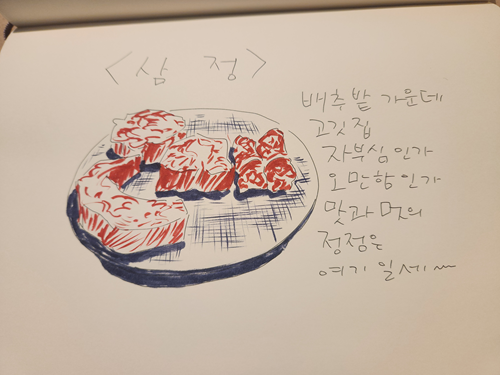 <삼 정>
배추밭 가운데
고깃집
자부심인가
오만함인가
맛과 멋의
정점은
여기 일세~